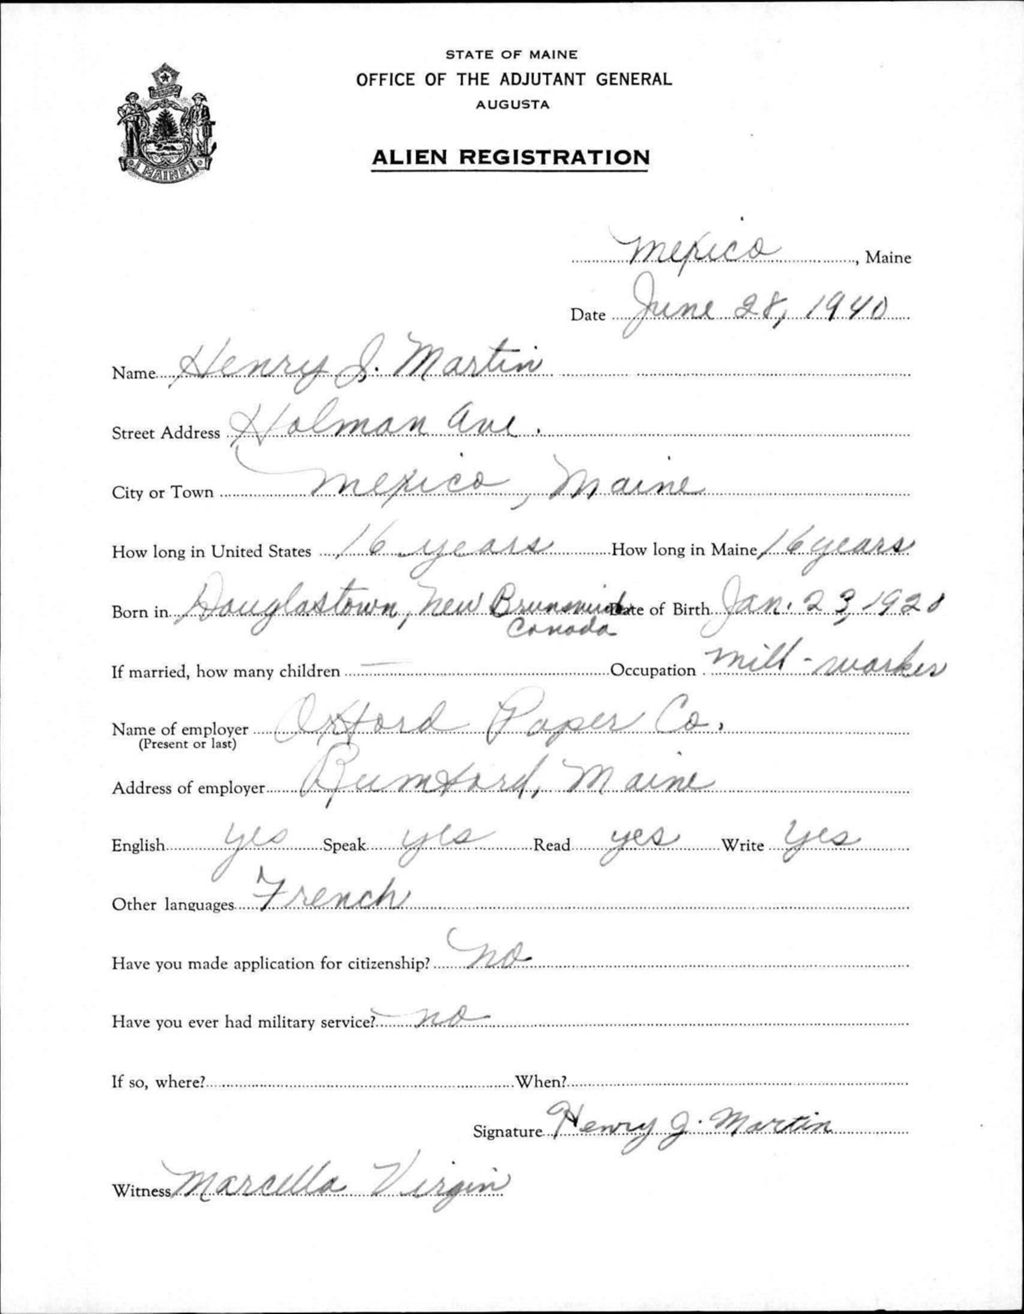 STATE OF MAINE
OFFICE OF THE ADJUTANT GENERAL
AUGUSTA
ALIEN REGISTRATION
MAINE
Mexico, Maine
Date June 28, 1940
Name Henry J. Martin
Street Address Holman Ave.
City or Town Mexico, Maine
How long in United States 16 years How long in Maine 16 years
Born in Douglastown, New Brunswick Date of Birth Jan. 23, 1920
Canada
If married, how many children — Occupation mill-worker
Name of employer Oxford Paper Co.
(Present or last)
Address of employer Rumford, Maine
English yes Speak yes Read yes Write yes
Other languages French
Have you made application for citizenship? no
Have you ever had military service? no
If so, where? When?
Signature Henry J. Martin
Witness Marcella Virgin